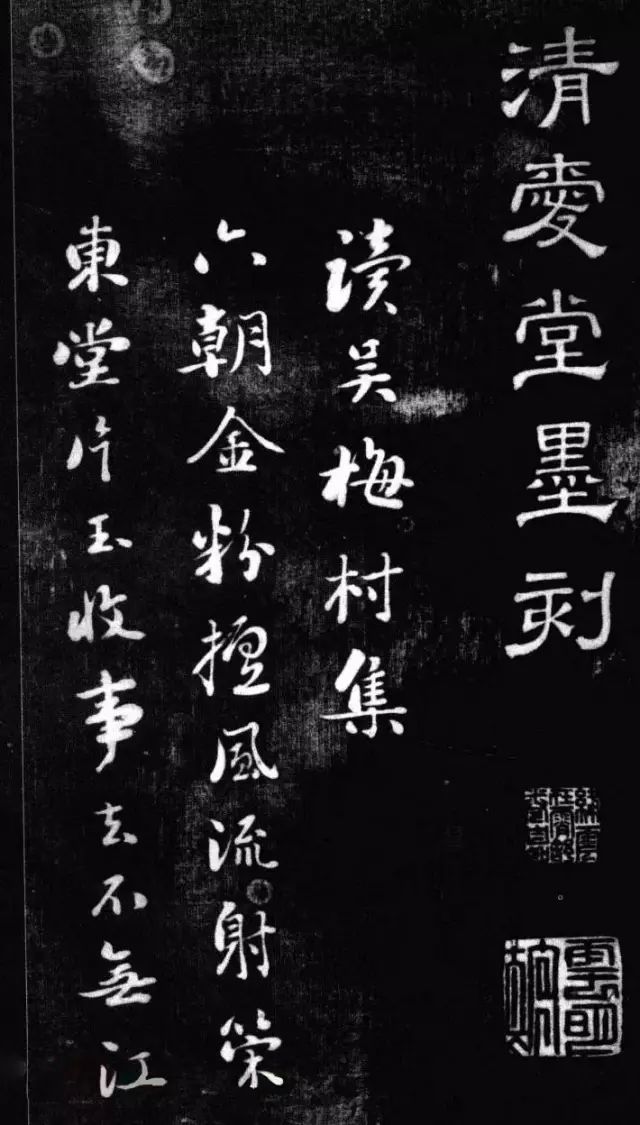 清愛堂墨刻
讀吴梅村集
六朝金粉擅風流射策
東堂片玉收事去不無江